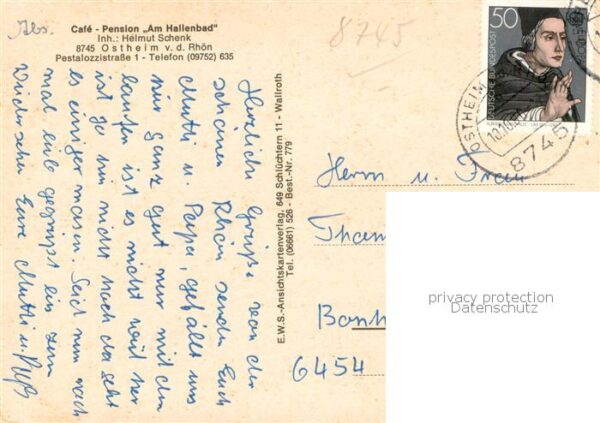 Abs.
Café - Pension „Am Hallenbad"
Inh.: Helmut Schenk
8745 Ostheim v. d. Rhön
Pestalozzistraße 1 - Telefon (09752) 635
8745
50
DEUTSCHE BUNDESPOST
OSTHEIM
8745
E.W.S.-Ansichtskartenverlag, 649 Schlüchtern 11 - Wallroth
Tel. (06661) 526 - Best.-Nr. 779
Herzliche Grüße von der
schönen Rhön sendet Euch
Mutti u. Papa, gefällt uns
hier ganz gut nur mit dem
laufen ist es nicht weit her
ist ja hin nicht nach da geht
es einiger masen. Seid nun noch
mal lieb gegrüßt bis zum
Wiedersehn Eure Mutti u.
Herrn u. Frau
6454
privacy protection
Datenschutz